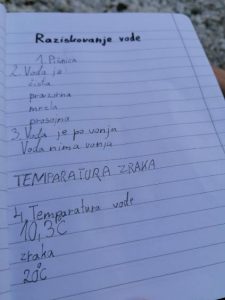 Raziskovanje vode
1. Pišnica
2. Voda je:
čista
prozorna
mrzla
prosojna
3. Voda je po vonju
Voda nima vonja
TEMPARATURA ZRAKA
4. Temparatura vode
10,3°C
zraka
20°C